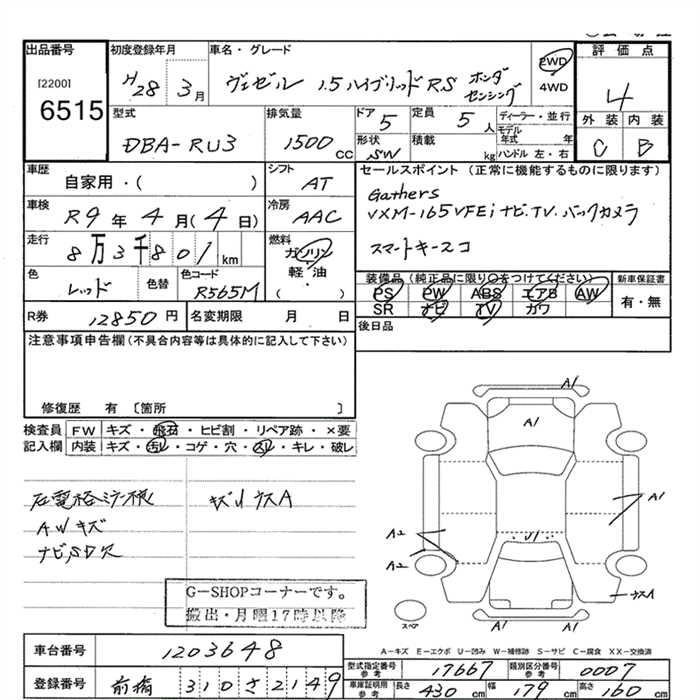 出品番号
[2200]
6515
初度登録年月
H28 3月
車名・グレード
ヴェゼル 1.5ハイブリッドRS ホンダセンシング
2WD
4WD
評価点
4
外装 内装
C B
型式
DBA-RU3
排気量
1500 cc
ドア 5
形状 SW
定員 5 人
積載 kg
ディーラー・並行
モデル年式 年
ハンドル 左・右
車歴
自家用・( )
シフト
AT
車検
R9年4月(4日)
冷房
AAC
走行
8万3千801km
燃料
ガソリン
軽・油
( )
色
レッド
色替
色コード
R565M
R券
12850円
名変期限 月 日
セールスポイント (正常に機能するものに限ります)
Gathers
VXM-165VFEi ナビ.TV.バックカメラ
スマートキー2コ
装備品(純正品に限り○をつけてください)
PS PW ABS エアB AW
SR ナビ TV カワ
新車保証書
有・無
後日品
注意事項申告欄(不具合内容等は具体的に記入して下さい)
修復歴 有〔箇所 〕
検査員 FW キズ・飛石・ヒビ割・リペア跡・×要
記入欄 内装 キズ・汚レ・コゲ・穴・スレ・キレ・破レ
AWキズ
ナビSD欠
G-SHOPコーナーです。
搬出・月曜17時以降
A1
A1
A1
A2
A2
A1
スペア
A-キズ E-エクボ U-凹み W-補修跡 S-サビ C-腐食 XX-交換済
車台番号
1203648
登録番号
前橋 310さ2149
型式指定番号 参考
17667
類別区分番号 参考
0007
車庫証明用 参考
長さ 430 cm
幅 179 cm
高さ 160 cm